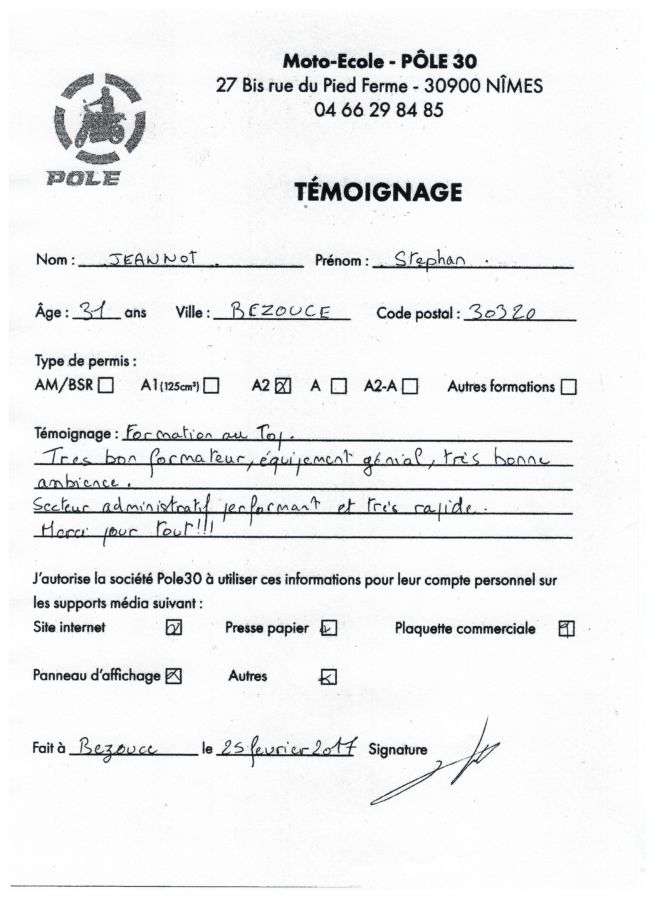 Moto-Ecole - PÔLE 30
27 Bis rue du Pied Ferme - 30900 NÎMES
04 66 29 84 85
POLE
TÉMOIGNAGE
Nom : JEANNOT . Prénom : Stephan .
Âge : 31 ans Ville : BEZOUCE Code postal : 30320
Type de permis :
AM/BSR A1 (125cm³) A2 A A2-A Autres formations
Témoignage : Formation au Top.
Tres bon formateur, équipement génial, très bonne
ambience.
Secteur administratif performant et très rapide.
Merci pour tout!!!
J'autorise la société Pole30 à utiliser ces informations pour leur compte personnel sur
les supports média suivant :
Site internet Presse papier Plaquette commerciale
Panneau d'affichage Autres
Fait à Bezouce le 25 fevrier 2017 Signature